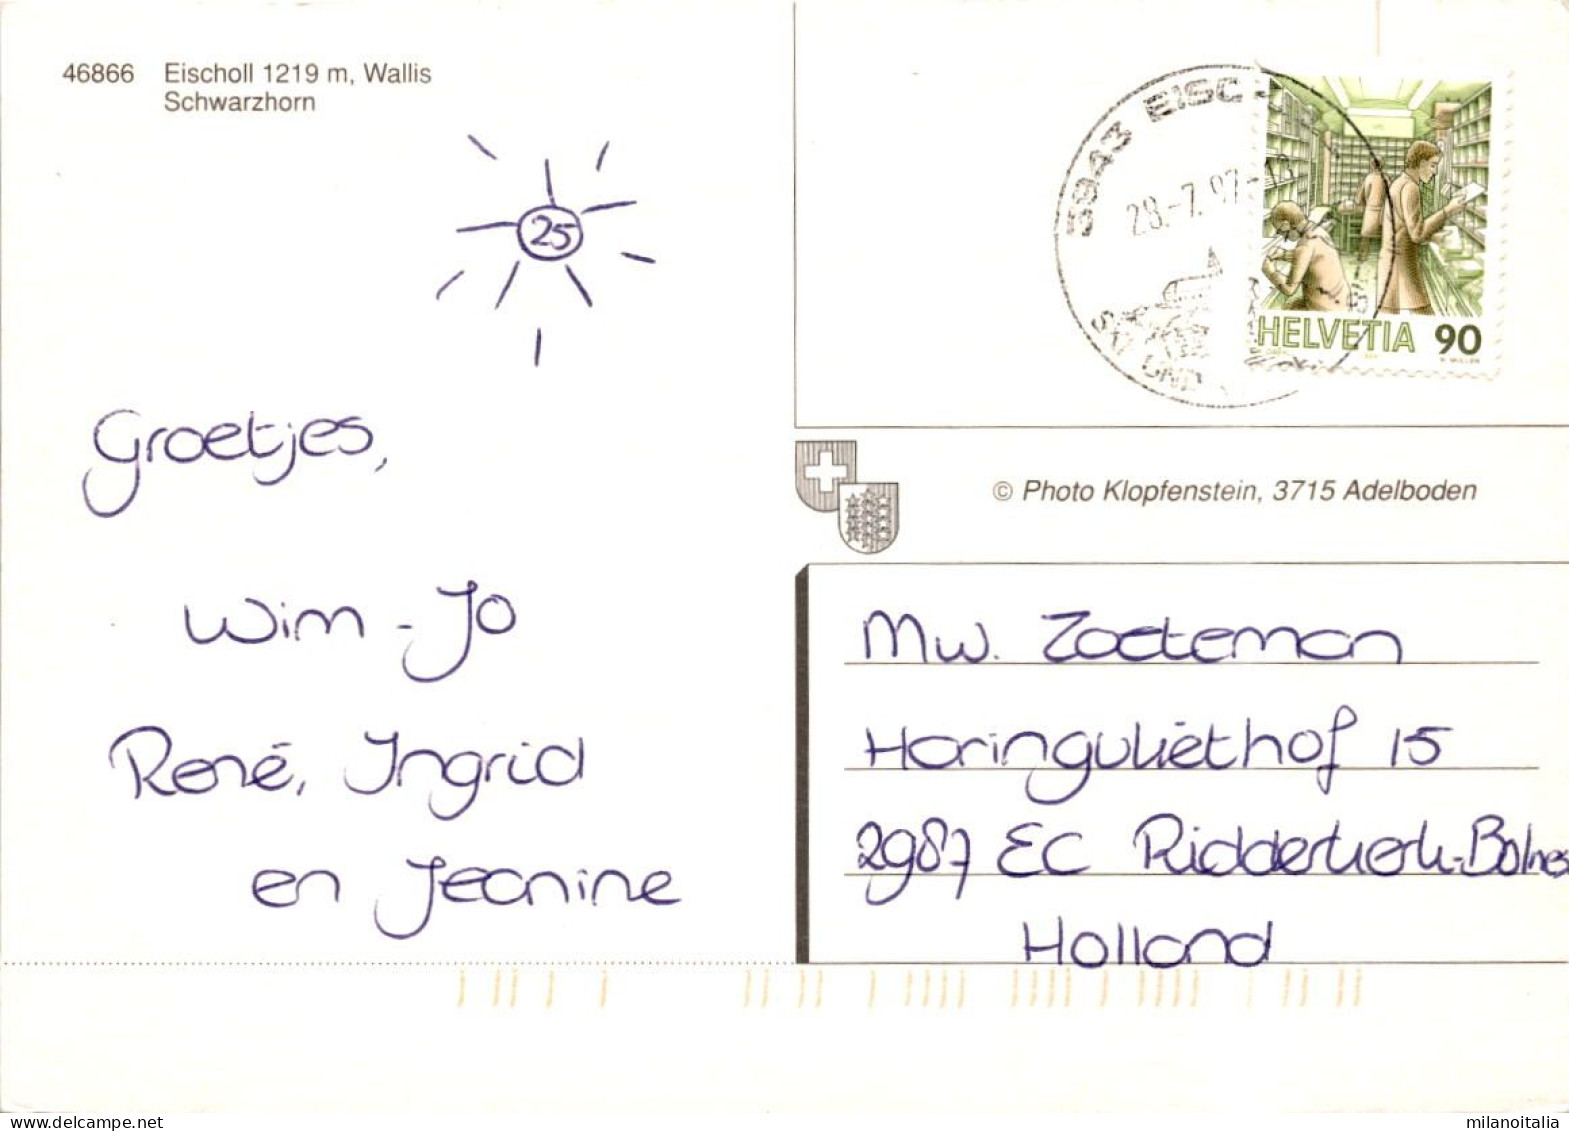 46866 Eischoll 1219 m, Wallis
Schwarzhorn
25
Groetjes,
Wim - Jo
René, Ingrid
en Jeanine
3943 EISC
28.-7.97-
ST. UND
HELVETIA 90
© Photo Klopfenstein, 3715 Adelboden
Mw. Zoeteman
Haringvliethof 15
2987 EC Ridderkerk-Bolnes
Holland
milanoitalia